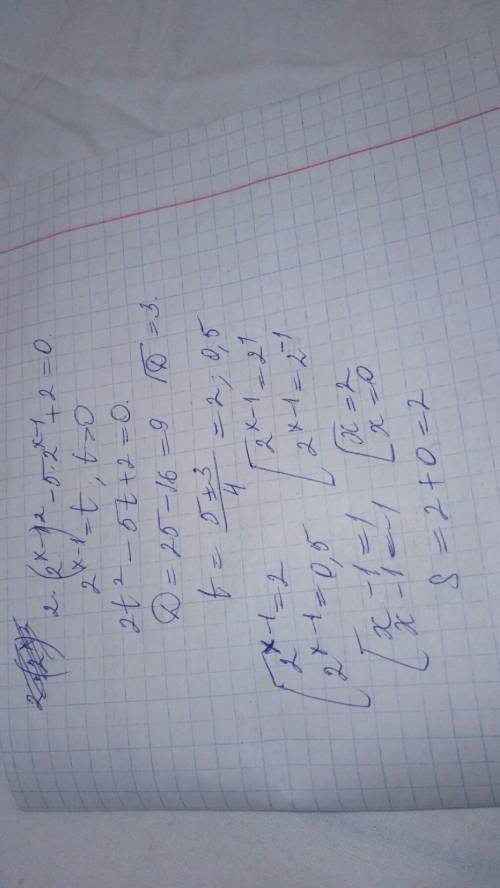 2·(2^x-1)^2 - 5·2^x-1 + 2 = 0.
2^x-1 = t, t>0
2t² - 5t + 2 = 0.
D = 25 - 16 = 9 √D = 3.
t = (5±3)/4 = 2; 0,5
[ 2^x-1 = 2 [ 2^x-1 = 2^1
2^x-1 = 0,5 2^x-1 = 2^-1
[ x - 1 = 1 [ x = 2
x - 1 = -1 x = 0
S = 2 + 0 = 2